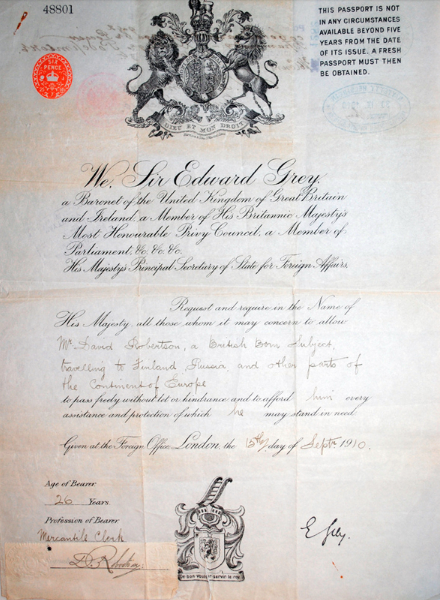 48801
THIS PASSPORT IS NOT
IN ANY CIRCUMSTANCES
AVAILABLE BEYOND FIVE
YEARS FROM THE DATE
OF ITS ISSUE. A FRESH
PASSPORT MUST THEN
BE OBTAINED.
SIX
PENCE
DIEU ET MON DROIT
We, Sir Edward Grey,
a Baronet of the United Kingdom of Great Britain
and Ireland, a Member of His Britannic Majesty's
Most Honourable Privy Council, a Member of
Parliament, &c. &c. &c.
His Majesty's Principal Secretary of State for Foreign Affairs.
Request and require in the Name of
His Majesty all those whom it may concern to allow
Mr David Robertson, a British born subject,
travelling to Finland Russia and other parts of
the Continent of Europe
to pass freely without let or hindrance and to afford him every
assistance and protection of which he may stand in need.
Given at the Foreign Office, London, the 15th day of Septr 1910.
Age of Bearer
26 Years
Profession of Bearer
Mercantile Clerk
E Grey.